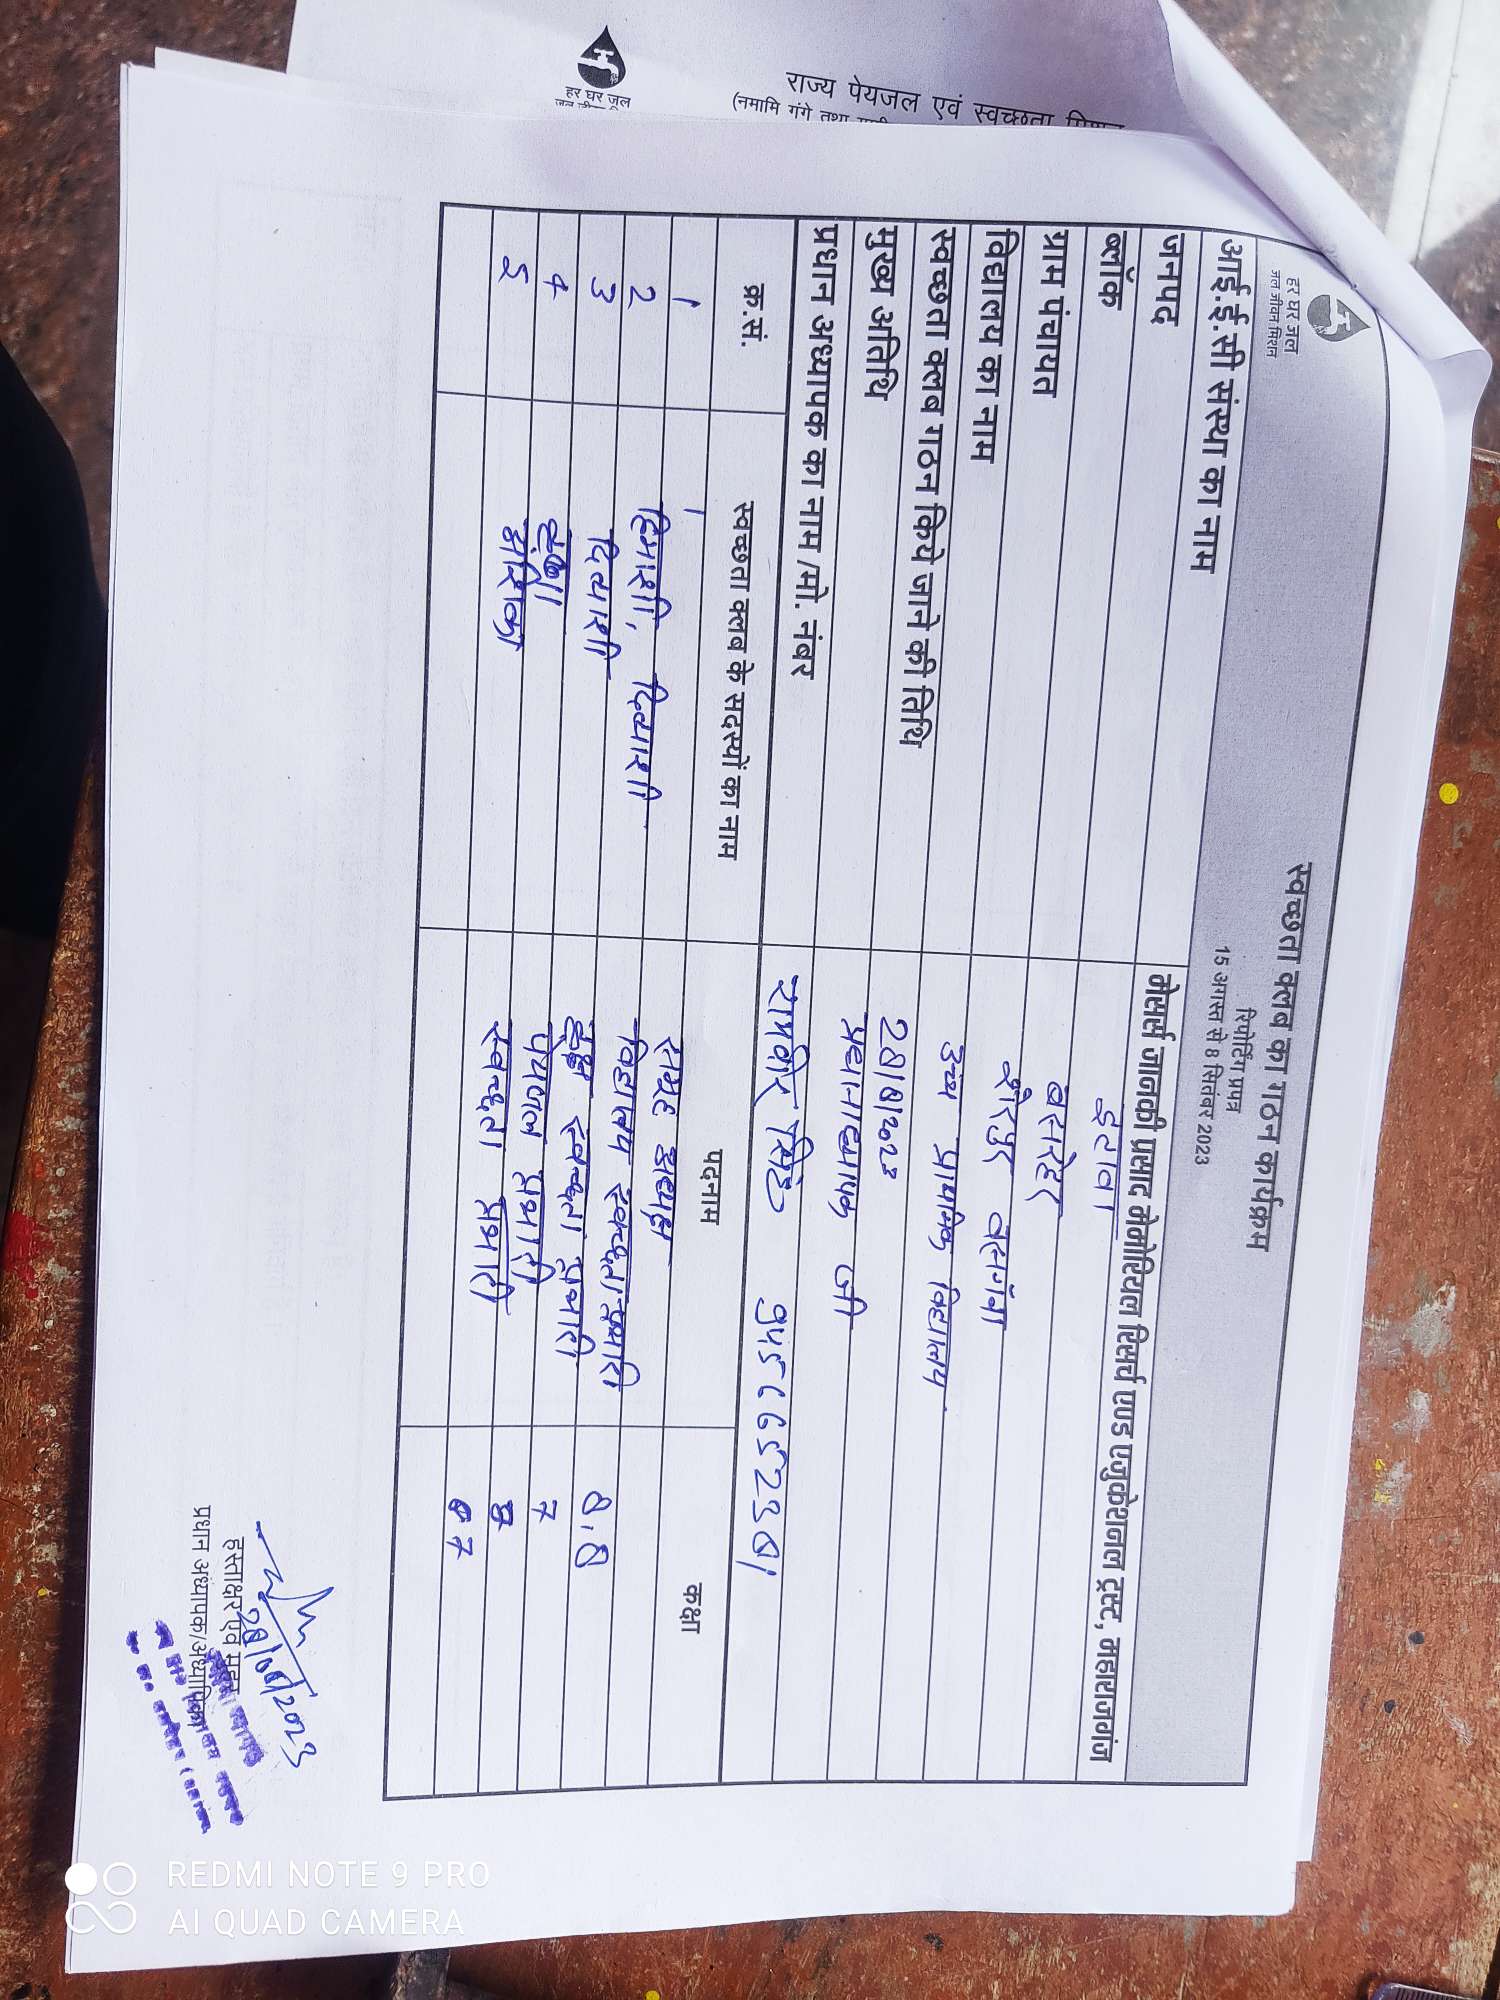 राज्य पेयजल एवं स्वच्छता मिशन
(नमामि गंगे तथा
हर घर जल
हर घर जल
जल जीवन मिशन
स्वच्छता क्लब का गठन कार्यक्रम
रिपोर्टिंग प्रपत्र
15 अगस्त से 8 सितंबर 2023
आई.ई.सी संस्था का नाम मेसर्स जानकी प्रसाद मेमोरियल रिसर्च एण्ड एजुकेशनल ट्रस्ट, महाराजगंज
जनपद इटावा
ब्लॉक बसरेहर
ग्राम पंचायत
विद्यालय का नाम उच्च प्राथमिक विद्यालय
स्वच्छता क्लब गठन किये जाने की तिथि 28/8/2023
मुख्य अतिथि प्रधानाध्यापक जी
प्रधान अध्यापक का नाम /मो. नंबर रामवीर सिंह
क्र.सं. स्वच्छता क्लब के सदस्यों का नाम पदनाम कक्षा
1
2 हिमांशी, दिव्यांशी विद्यालय स्वच्छता प्रभारी 8,8
3 दिव्यांशी स्वच्छता प्रभारी 7
4 पेयजल प्रभारी
5 स्वच्छता प्रभारी 7
28/08/2023
हस्ताक्षर एवं मुहर
प्रधान अध्यापक/अध्यापिका
REDMI NOTE 9 PRO
AI QUAD CAMERA